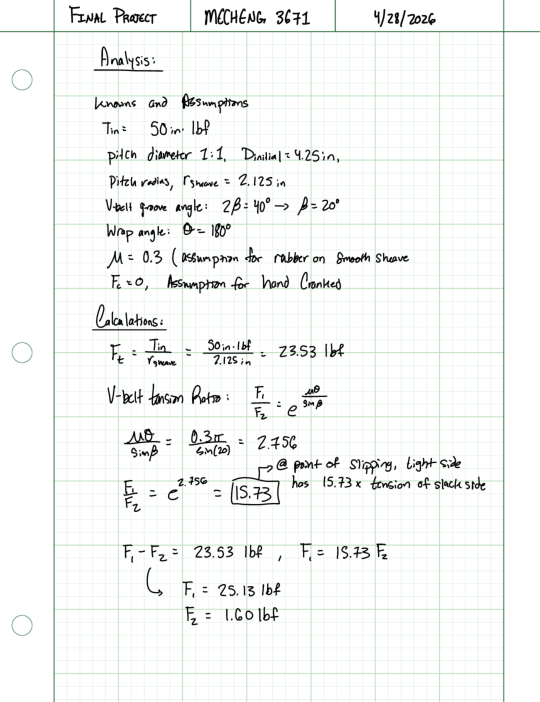 FINAL PROJECT MECHENG 3671 4/28/2026
Analysis:
knowns and Assumptions
Tin = 50 in·lbf
pitch diameter 1:1, Dinitial = 4.25 in,
Pitch radius, rsheave = 2.125 in
V-belt groove angle: 2β = 40° → β = 20°
Wrap angle: θ = 180°
μ = 0.3 (assumption for rubber on smooth sheave
Fc = 0, Assumption for hand Cranked
Calculations:
Ft = Tin / rsheave = 50 in·lbf / 2.125 in = 23.53 lbf
V-belt tension Ratio: F1/F2 = e^(μθ/sinβ)
μθ/sinβ = 0.3π/sin(20) = 2.756
F1/F2 = e^2.756 = 15.73 → @ point of slipping, tight side
has 15.73x tension of slack side
F1 - F2 = 23.53 lbf , F1 = 15.73 F2
F1 = 25.13 lbf
F2 = 1.60 lbf